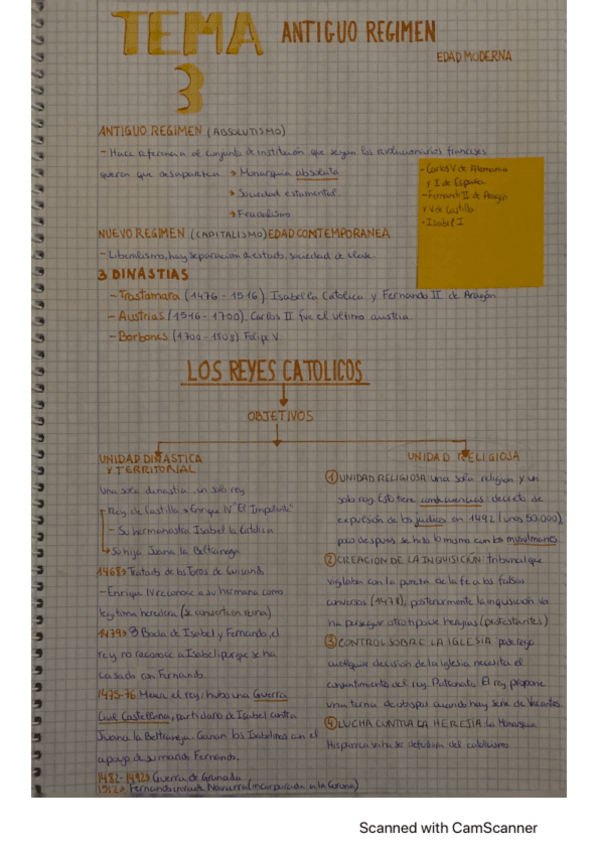 TEMA 3
ANTIGUO REGIMEN
EDAD MODERNA
ANTIGUO REGIMEN (ABSOLUTISMO)
- Hace referencia al conjunto de institución que segun los revolucionarios franceses
querian que desaparezca → Monarquia absoluta
→ Sociedad estamental.
→ Feudalismo
- Carlos V de Alemania
y I de España.
- Fernando II de Aragon
y V de Castilla.
- Isabel I
NUEVO REGIMEN (CAPITALISMO) EDAD CONTEMPORANEA
- Liberalismo, hay separación estado, sociedad de clase.
3 DINASTIAS
- Trastamara (1476 - 1516). Isabel la Catolica y Fernando II de Aragón
- Austrias (1516 - 1700). Carlos II fue el ultimo austria.
- Borbones (1700 - 1808) Felipe V.
LOS REYES CATOLICOS
OBJETIVOS
UNIDAD DINASTICA
Y TERRITORIAL
Una sola dinastia, un solo rey
Rey de Castilla → Enrique IV "El Impotente"
- Su hermanastra Isabel la Catolica
→ Su hija Juana la Beltraneja
1468 → Tratado de los Toros de Guisando
- Enrique IV reconoce a su hermana como
legitima heredera (se convertirá en reina)
→ Boda de Isabel y Fernando, el
rey no reconoce a Isabel porque se ha
casado con Fernando.
1475-76 Muere el rey, hubo una Guerra
Civil Castellana, partidario de Isabel contra
Juana la Beltraneja. Ganan los Isabelinos con el
apoyo de su marido Fernando.
1482-1492 → Guerra de Granada
1512 → Fernando invade Navarra (incorporada a la Corona)
UNIDAD RELIGIOSA
1 UNIDAD RELIGIOSA: una sola religion y un
solo rey. Esto tiene consecuencias: decreto de
expulsión de los judios en 1492 (unos 50.000),
poco despues se hizo lo mismo con los musulmanes
2 CREACION DE LA INQUISICIÓN: tribunal que
vigilaba con la pureza de la fe a los falsos
conversos (1478), posteriormente la inquisición va
ha perseguir otro tipo de herejias (protestantes)
3 CONTROL SOBRE LA IGLESIA:
cualquier decisión de la iglesia necesita el
consentimiento del rey. Patronato. El rey propone
una terna de obispos cuando hay serie de Vacantes.
4 LUCHA CONTRA LA HEREJIA: la Monarquia
Hispanica va ha ser defensora del catolicismo
Scanned with CamScanner